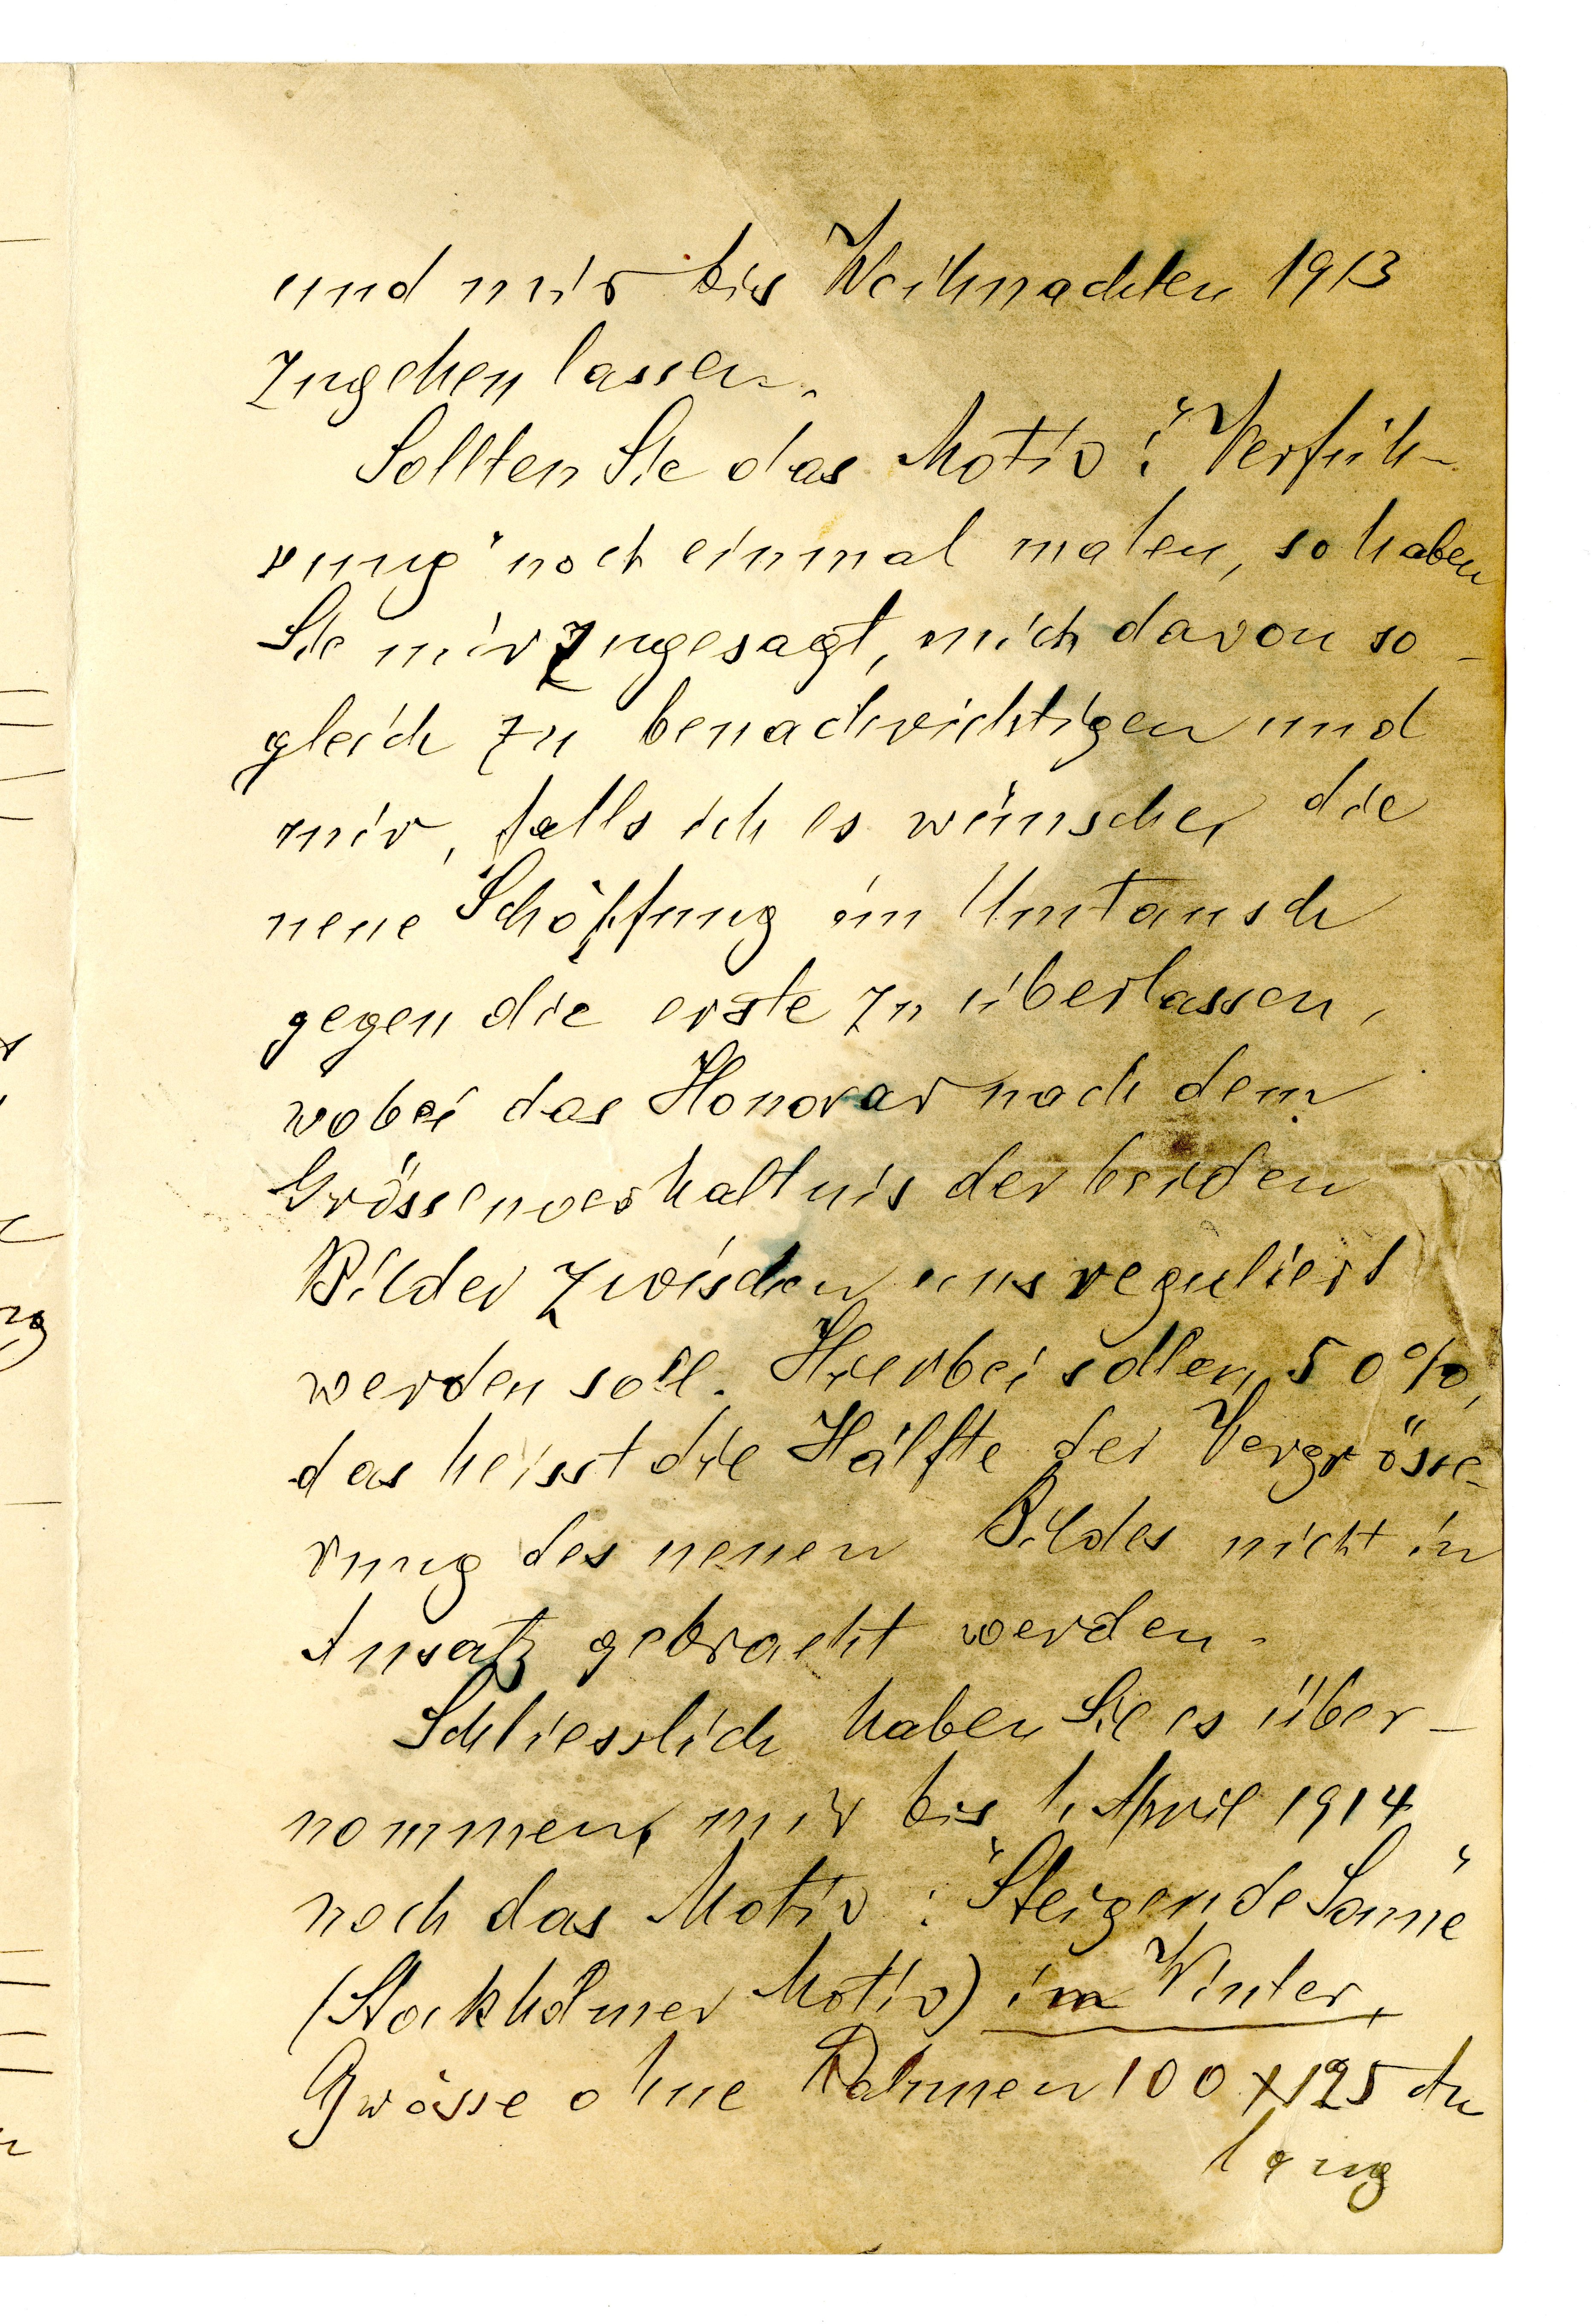 und mir bis Weihnachten 1913
zugehen lassen.
Sollten Sie das Motiv: "Verfüh-
rung" noch einmal malen, so haben
Sie mir zugesagt, mich davon so-
gleich zu benachrichtigen und
mir, falls ich es wünsche, die
neue Schöpfung im Umtausch
gegen die erste zu überlassen,
wobei das Honorar nach dem
Grössenverhältnis der beiden
Bilder zwischen uns reguliert
werden soll. Hierbei sollen 50%,
das heisst die Hälfte der Vergrösse-
rung des neuen Bildes nicht in
Ansatz gebracht werden.
Schliesslich haben Sie es über-
nommen, mir bis 1. April 1914
noch das Motiv: "Steigende Sonne"
(Stockholmer Motiv) im Winter,
Grösse ohne Rahmen 100 x 125 cm
lang